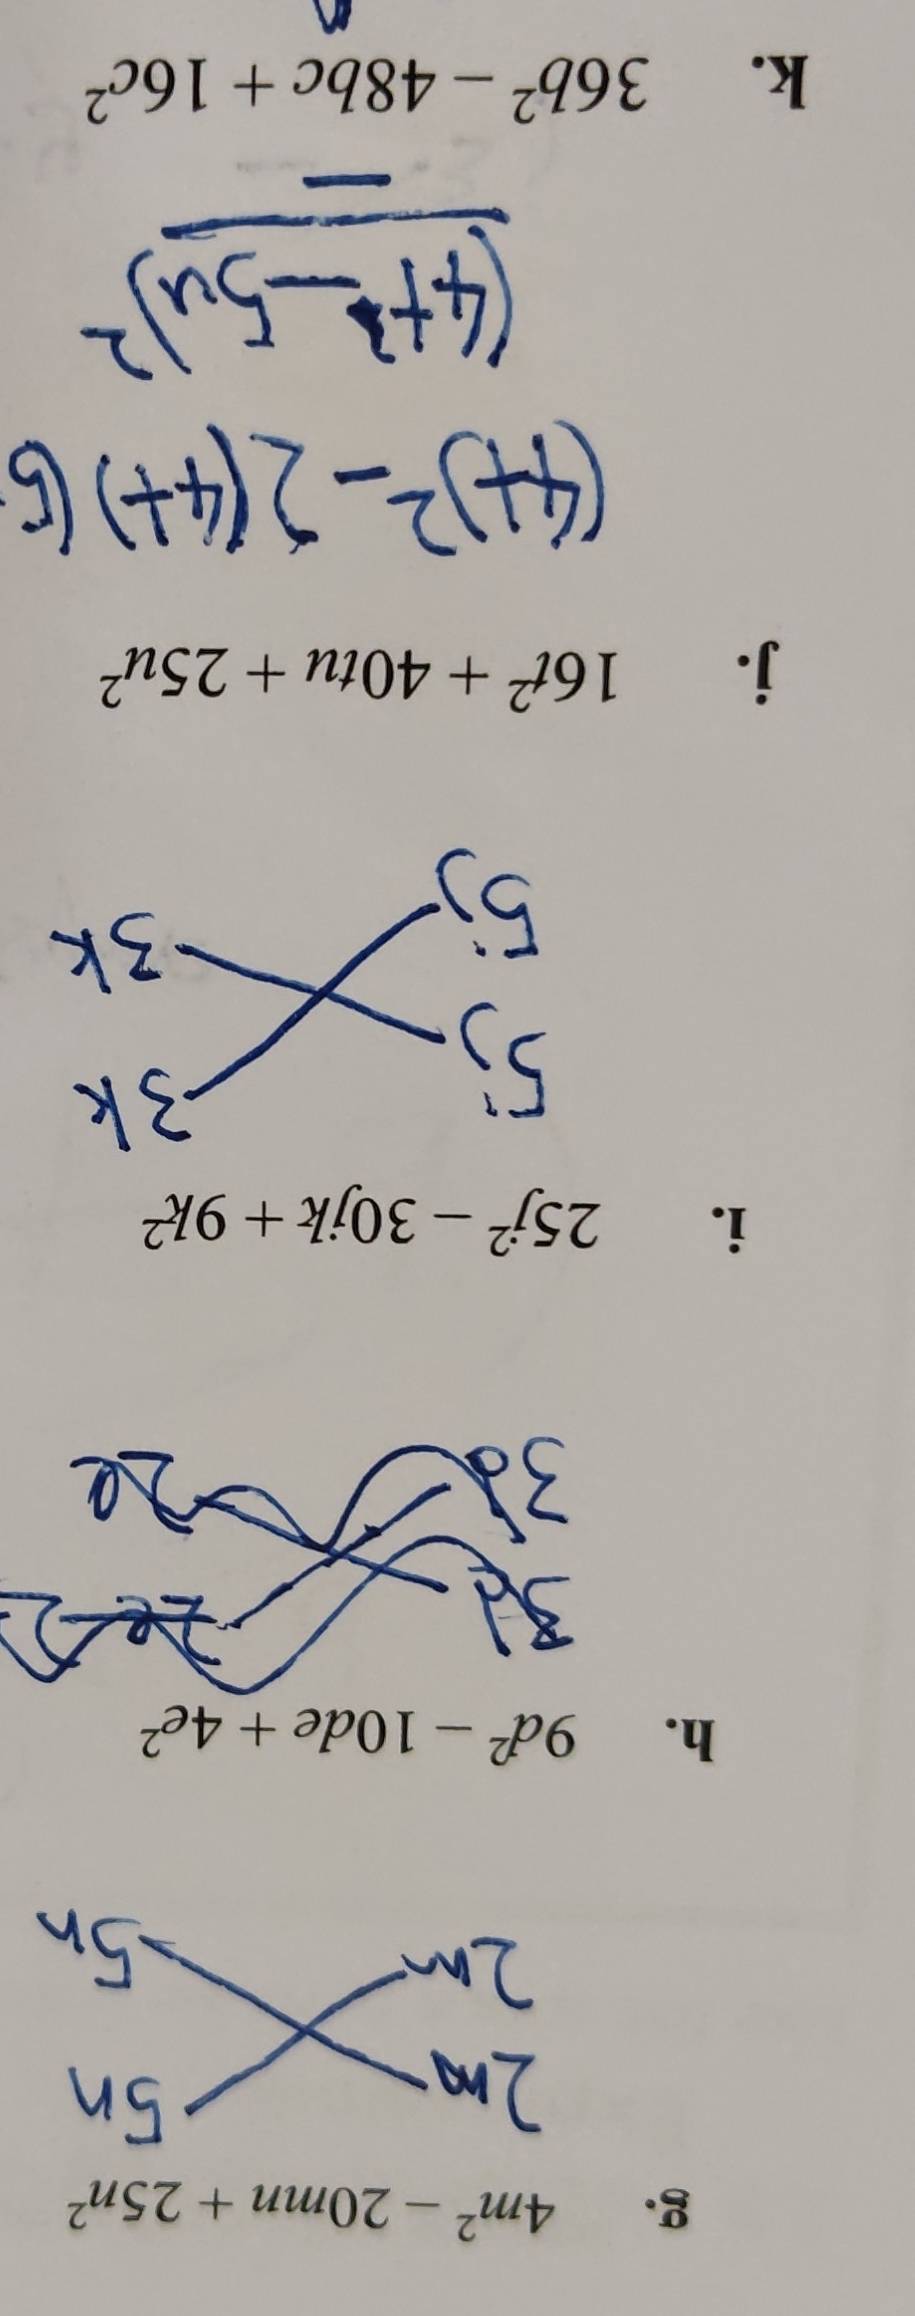 g. 4m² − 20mn + 25n²
2m 5n
2m 5n
h. 9d² − 10de + 4e²
3d 2e
3d 2e
i. 25j² − 30jk + 9k²
5j 3k
5j 3k
j. 16t² + 40tu + 25u²
(4t)² − 2(4t)(5
(4t − 5u)²
k. 36b² − 48bc + 16c²